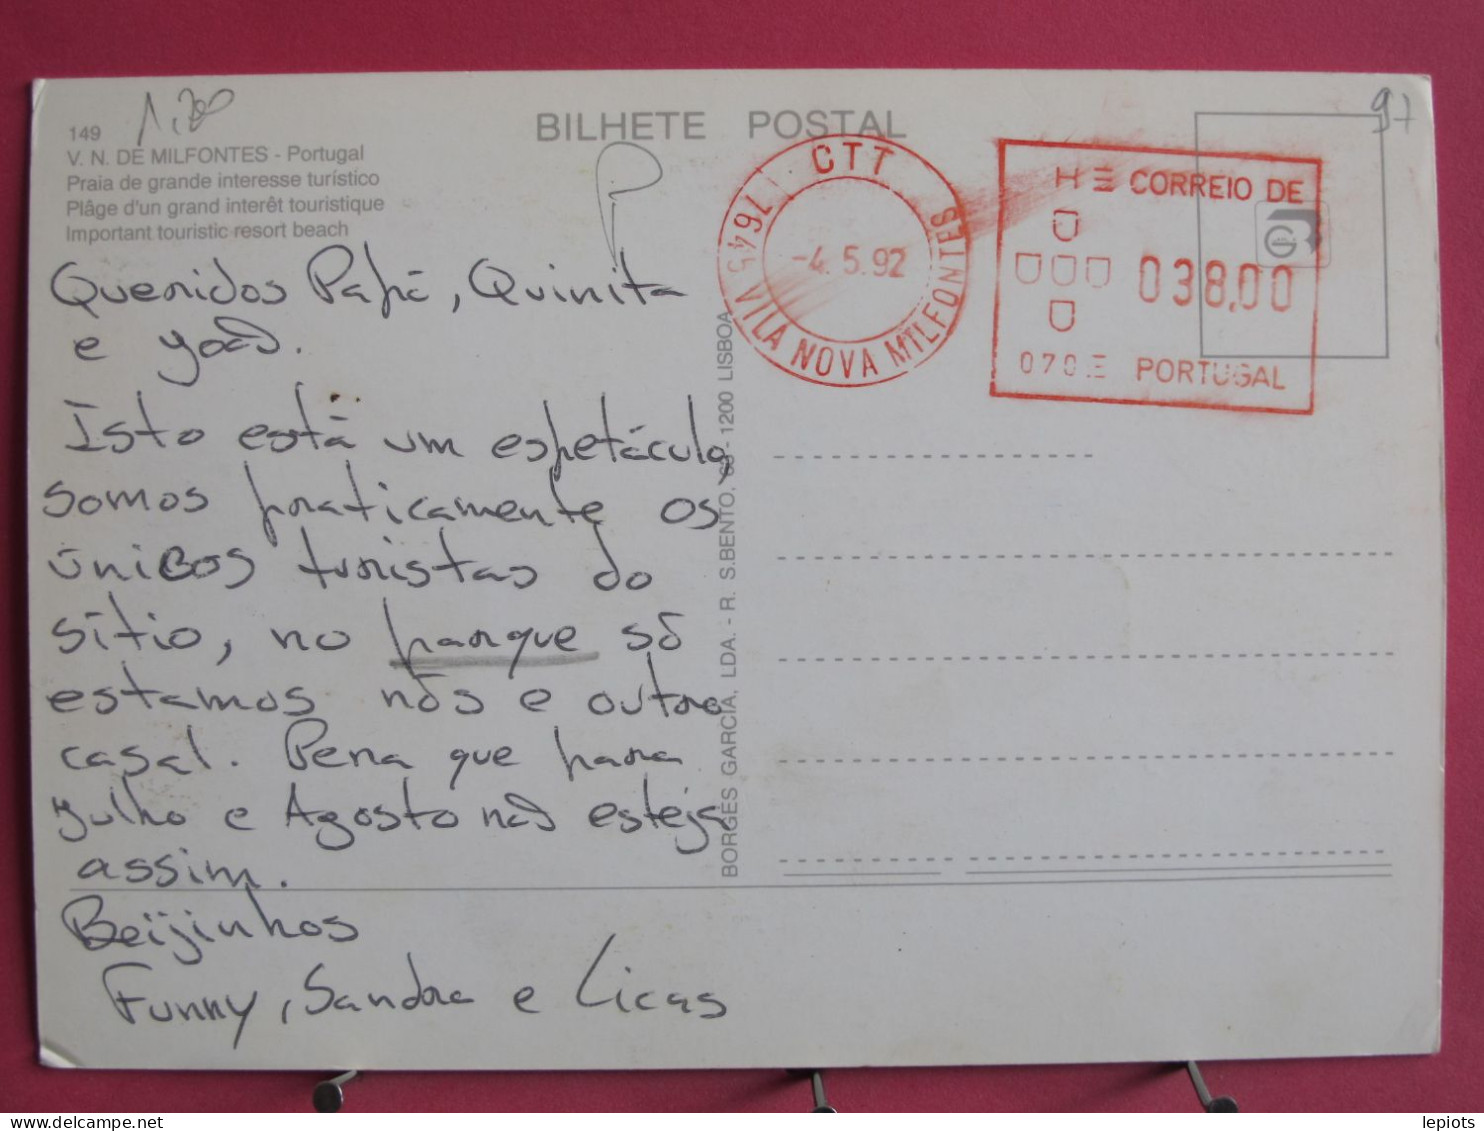 1,20
97
149
V. N. DE MILFONTES - Portugal
Praia de grande interesse turístico
Plâge d'un grand interêt touristique
Important touristic resort beach
BILHETE POSTAL
CTT
7645 VILA NOVA MILFONTES
-4. 5.92
CORREIO DE
038,00
PORTUGAL
Queridos Papá, Quinita
e João.
Isto está um espetáculo,
somos praticamente os
únicos turistas do
sítio, no parque só
estamos nós e outro
casal. Pena que para
Julho e Agosto não esteja
assim.
Beijinhos
Funny, Sandra e Licas
BORGES GARCIA, LDA. - R. S.BENTO, - 1200 LISBOA
delcampe.net
lepiots